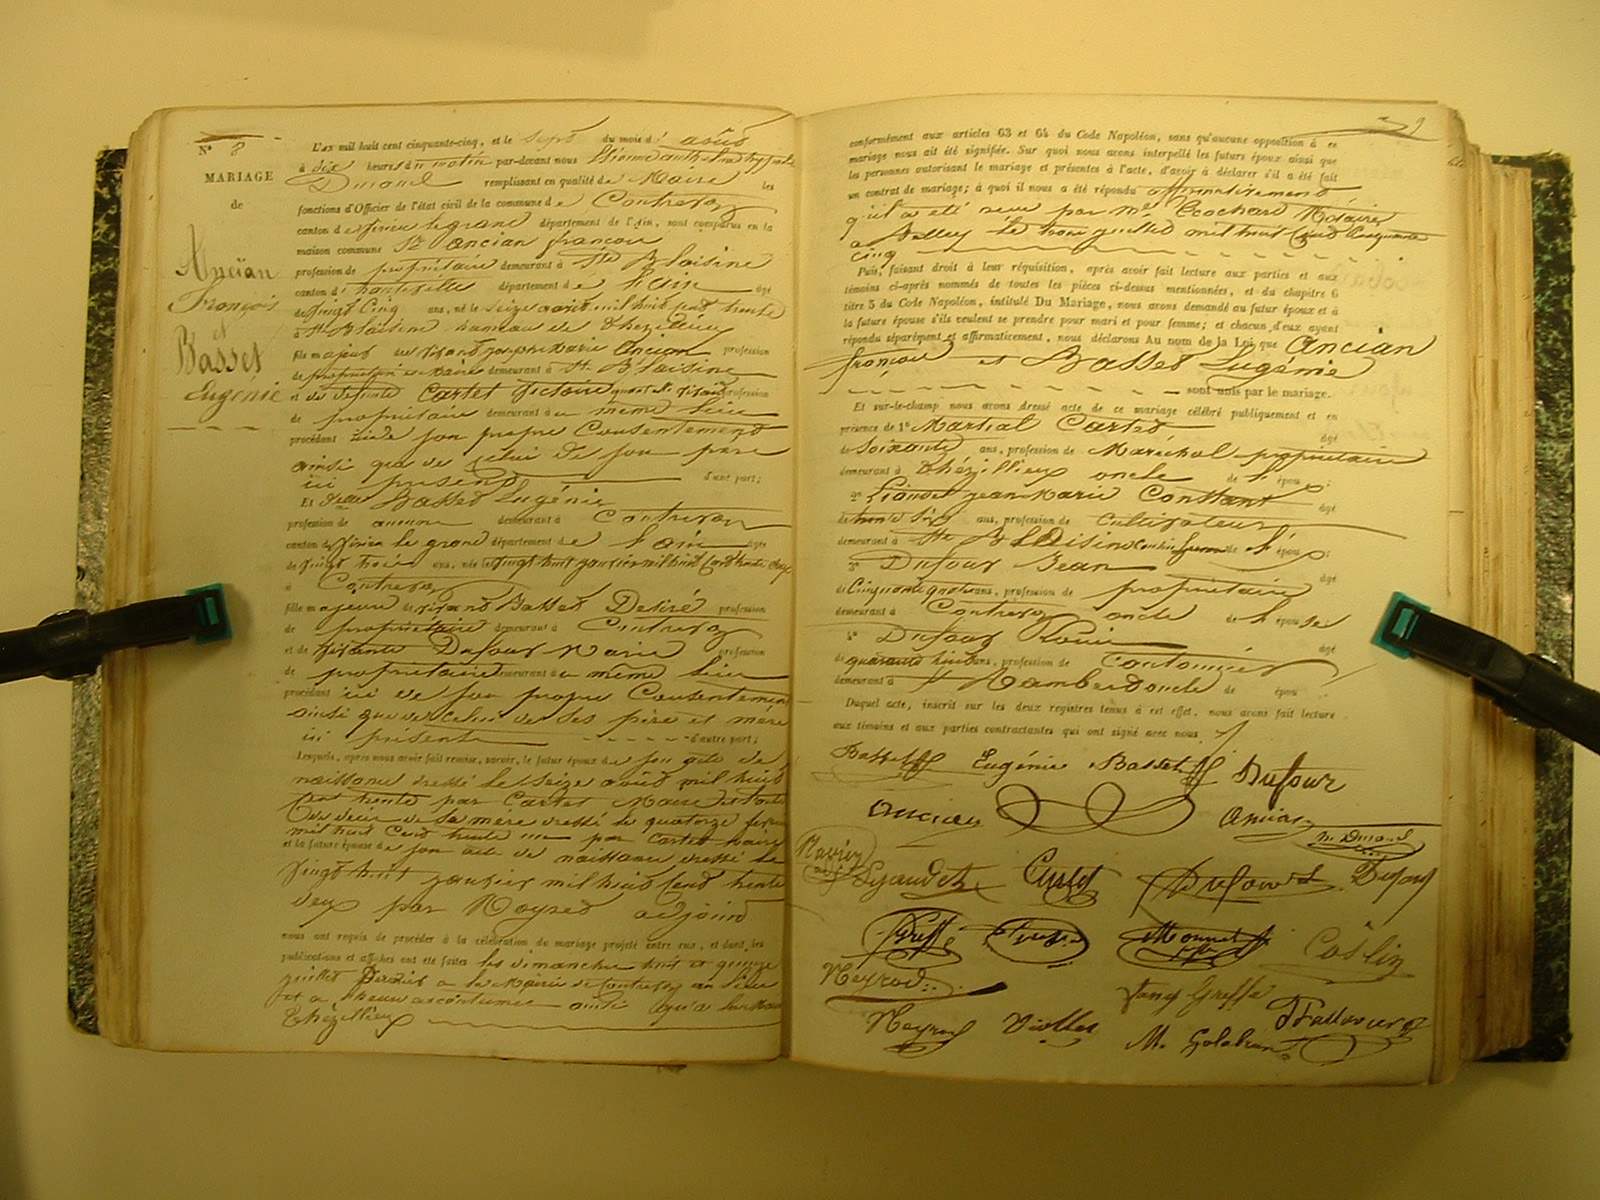 N° 8
MARIAGE
de
Ancian
François
et
Basset
Eugénie
L'an mil huit cent cinquante-cinq, et le sept du mois d'août
à dix heures du matin par-devant nous
Durand remplissant en qualité de Maire les
fonctions d'Officier de l'état civil de la commune de Contrevoz
canton de Virieu le grand département de l'Ain, sont comparus en la
maison commune Sr Ancian françois
profession de propriétaire demeurant à Ste Blaisine
canton d'hauteville département de l'ain âgé
de vingt Cinq ans, né le seize août mil huit cent trente
à Ste Blaisine hameau de Thézillieu
fils majeur de vivant joseph Marie Ancian profession
de propriétaire demeurant à Ste Blaisine
et de défunte Cartet Victoire quant elle vivait profession
de propriétaire demeurant au même lieu
procédant ici de son propre Consentement
ainsi que de celui de son père
ici présent d'une part;
Et Delle Basset Eugénie
profession de aucune demeurant à Contrevoz
canton de Virieu le grand département de l'ain âgée
de vingt trois ans, née le vingt huit janvier mil huit Cent trente deux
à Contrevoz
fille majeure de vivant Basset Desiré profession
de propriétaire demeurant à Contrevoz
et de vivante Dufour Marie profession
de propriétaire demeurant au même lieu
procédant ici de son propre Consentement
ainsi que de celui de ses père et mère
ici présents d'autre part;
Lesquels, après nous avoir fait remise, savoir, le futur époux de son acte de
naissance dressé le seize août mil huit
cent trente par Cartet Maire et l'acte
de décès de sa mère dressé le quatorze
mil huit Cent trente par Cartet maire
et la future épouse de son acte de naissance dressé le
vingt huit janvier mil huit Cent trente
deux par Noyret adjoint
nous ont requis de procéder à la célébration du mariage projeté entre eux, et dont les
publications et affiches ont été faites les dimanches huit et quinze
juillet Derniers à la Mairie de Contrevoz au lieu
et à l'heure accoutumée ainsi qu'à
Thézillieu
conformément aux articles 63 et 64 du Code Napoléon, sans qu'aucune opposition à ce
mariage nous ait été signifiée. Sur quoi nous avons interpellé les futurs époux ainsi que
les personnes autorisant le mariage et présentes à l'acte, d'avoir à déclarer s'il a été fait
un contrat de mariage; à quoi il nous a été répondu affirmativement
qu'il a été reçu par me Cochard Notaire
à Belley le juillet mil huit Cent Cinquante
cinq
Puis, faisant droit à leur réquisition, après avoir fait lecture aux parties et aux
témoins ci-après nommés de toutes les pièces ci-dessus mentionnées, et du chapitre 6
titre 5 du Code Napoléon, intitulé Du Mariage, nous avons demandé au futur époux et à
la future épouse s'ils veulent se prendre pour mari et pour femme; et chacun d'eux ayant
répondu séparément et affirmativement, nous déclarons Au nom de la Loi que Ancian
françois et Basset Eugénie
sont unis par le mariage.
Et sur-le-champ nous avons dressé acte de ce mariage célébré publiquement et en
présence de 1° Martial Cartet âgé
de soixante ans, profession de Maréchal propriétaire
demeurant à Thézillieu oncle de l'époux;
2° Jean Marie Constant âgé
de trente six ans, profession de cultivateur
demeurant à Ste Blaisine de l'époux;
3° Dufour Jean âgé
de Cinquante quatre ans, profession de propriétaire
demeurant à Contrevoz oncle de l'épouse
4° Dufour Louis âgé
de quarante huit ans, profession de Cantonnier
demeurant à St Rambert oncle de épou
Duquel acte, inscrit sur les deux registres tenus à cet effet, nous avons fait lecture
aux témoins et aux parties contractantes qui ont signé avec nous
Basset Eugénie Basset Dufour
ancian Ancian
m. Durand
Lyaudet Cartet Dufour L
Greffe Monnet Coslin
Neyrod Fany Greffe
Neyrod Violles